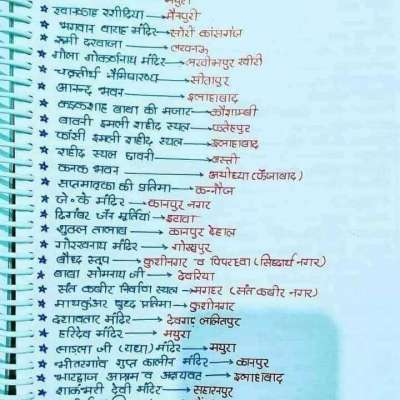 मथुरा
★ खानकाह रशीदिया → मैनपुरी
★ भगवान वाराह मंदिर → सोरों कासगंज
★ रूमी दरवाजा → लखनऊ
★ गोला गोकर्णनाथ मंदिर → लखीमपुर खीरी
★ चक्रतीर्थ नैमिषारण्य → सीतापुर
★ आनन्द भवन → इलाहाबाद
★ कड़कशाह बाबा की मजार → कौशाम्बी
★ बावनी इमली शहीद स्थल → फतेहपुर
★ फांसी इमली शहीद स्थल → इलाहाबाद
★ शहीद स्थल छावनी → बस्ती
★ कनक भवन → अयोध्या (फैजाबाद)
★ सप्तमातृका की प्रतिमा → कन्नौज
★ जे०के मंदिर → कानपुर नगर
★ दिगंबर जैन मूर्तियां → इटावा
★ शुक्ल तालाब → कानपुर देहात
★ गोरखनाथ मंदिर → गोरखपुर
★ बौद्ध स्तूप → कुशीनगर व पिपरहवा (सिद्धार्थ नगर)
★ बाबा सोमनाथ जी → देवरिया
★ संत कबीर निर्वाण स्थल → मगहर (संत कबीर नगर)
★ माथकुंअर बुद्ध प्रतिमा → कुशीनगर
★ दशावतार मंदिर → देवगढ़ ललितपुर
★ हरिदेव मंदिर → मथुरा
★ लाडला जी (राधा) मंदिर → मथुरा
★ भीतरगांव गुप्त कालीन मंदिर → कानपुर
★ भारद्वाज आश्रम व अक्षयवट → इलाहाबाद
★ शाकंभरी देवी मंदिर → सहारनपुर